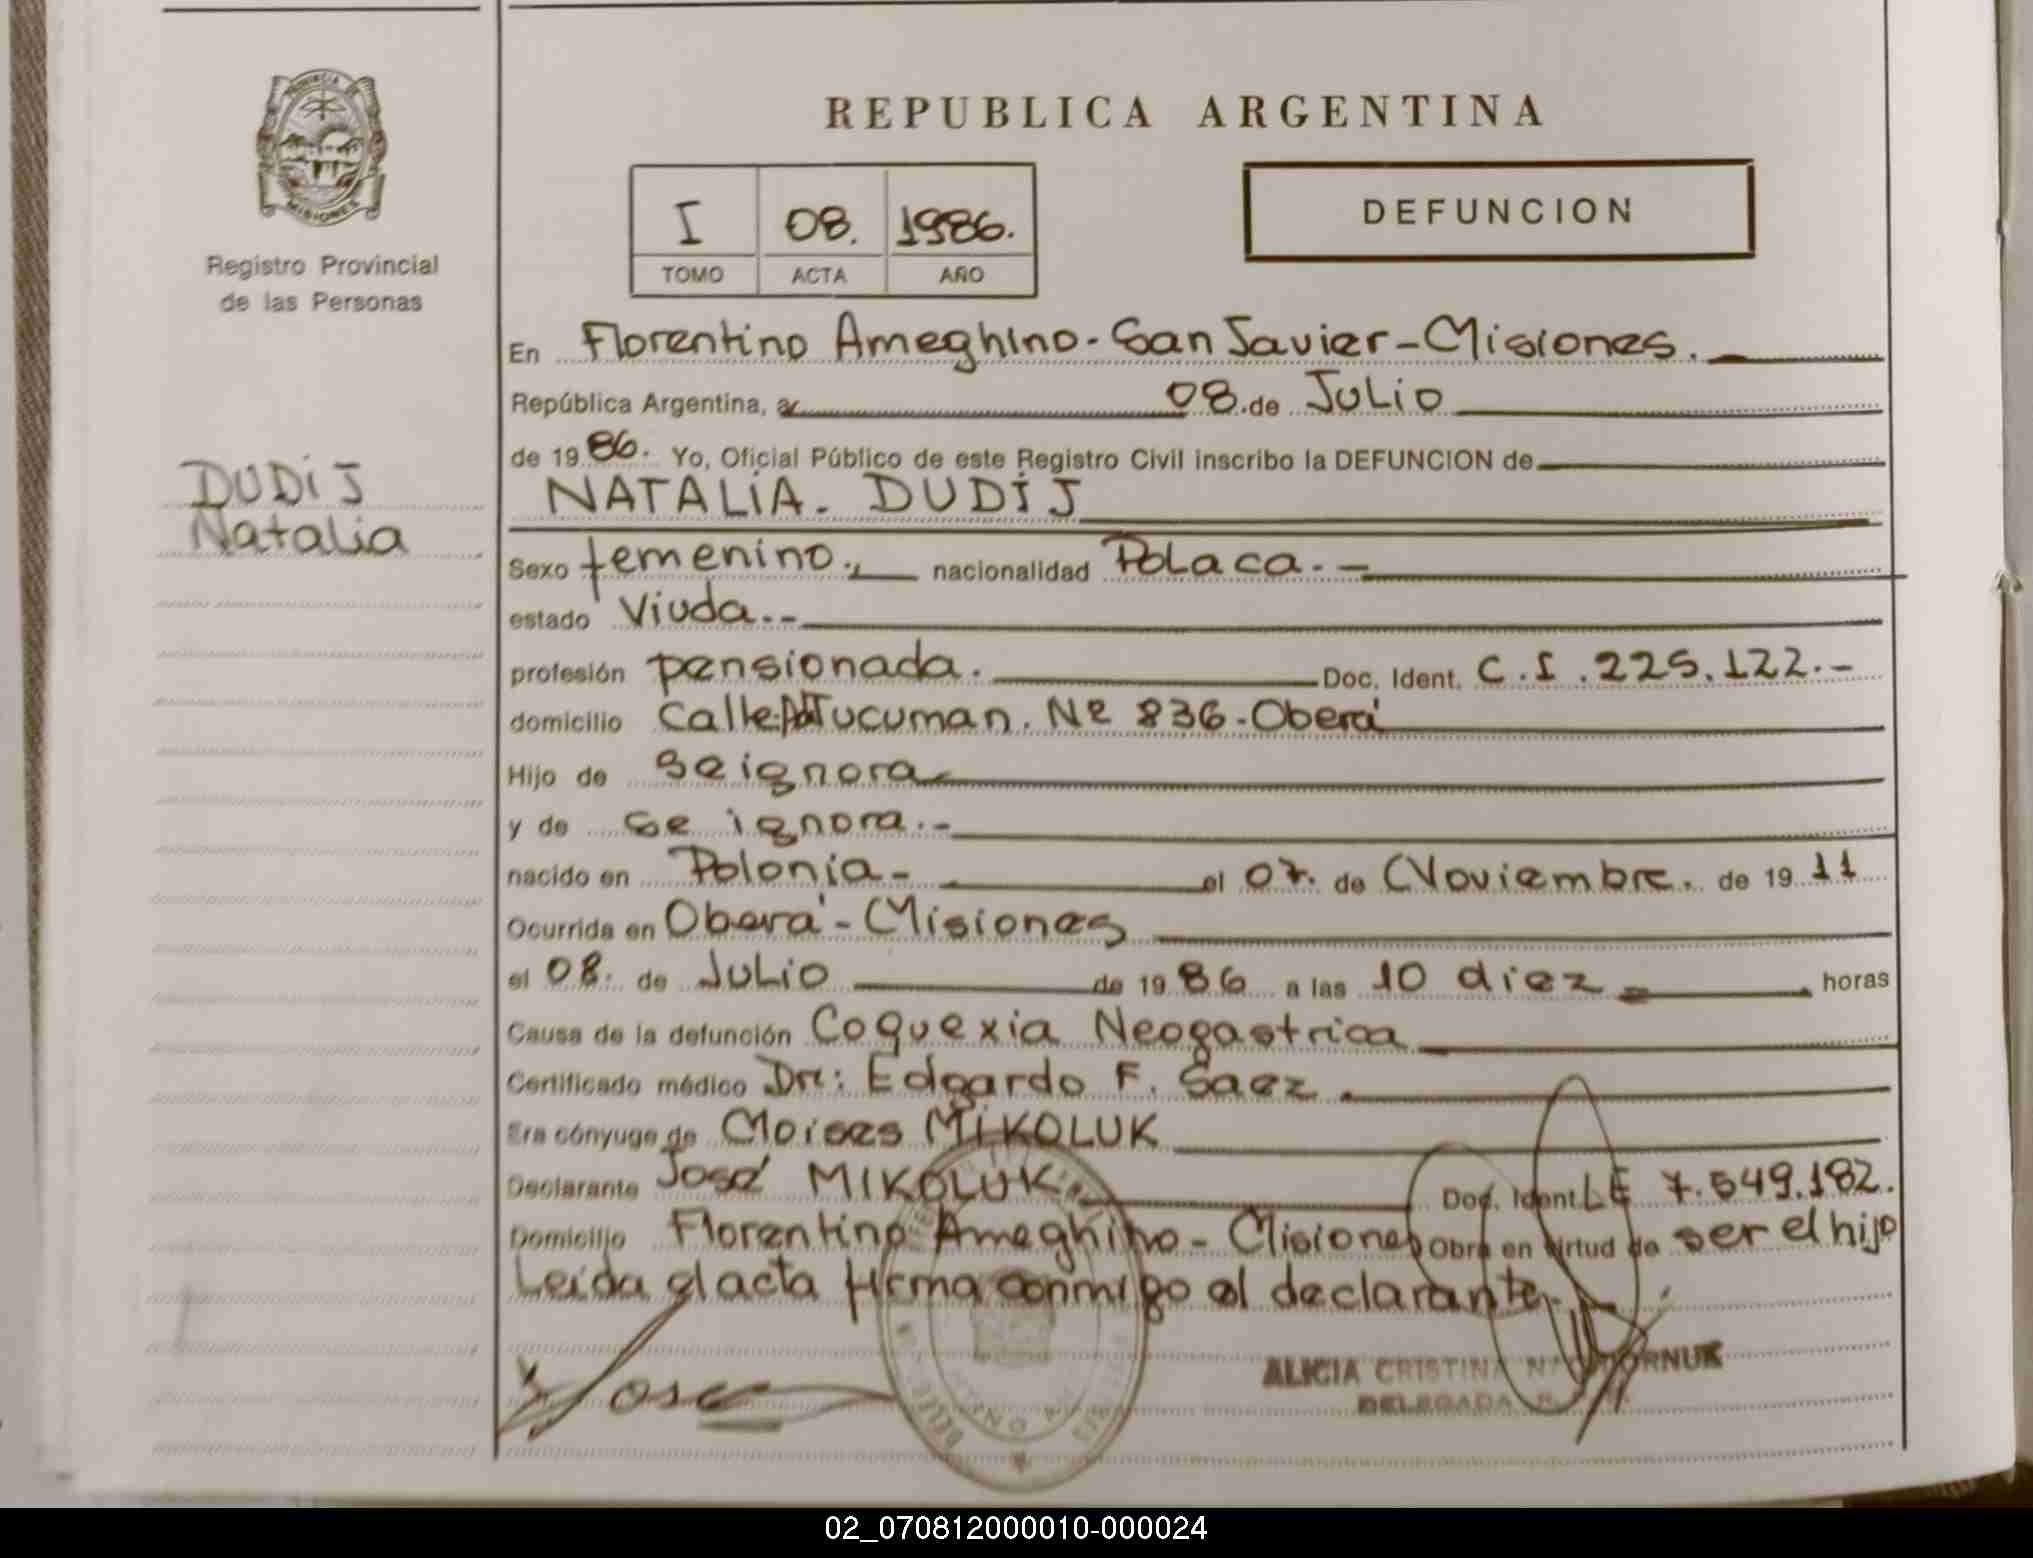 PROVINCIA DE
MISIONES
Registro Provincial
de las Personas
DUDIJ
Natalia
REPUBLICA ARGENTINA
I 08. 1986.
TOMO ACTA AÑO
DEFUNCION
En Florentino Ameghino - San Javier - Misiones.
República Argentina, a 08 de Julio
de 1986. Yo, Oficial Público de este Registro Civil inscribo la DEFUNCION de
NATALIA. DUDIJ
Sexo femenino., nacionalidad Polaca. -
estado Viuda. -
profesión pensionada. Doc. Ident. C.I. 225.122. -
domicilio Calle: Tucuman. Nº 836 - Oberá
Hijo de Se ignora
y de se ignora. -
nacido en Polonia - el 07. de Noviembre. de 1911
Ocurrida en Oberá - Misiones
el 08. de Julio de 1986 a las 10 diez horas
Causa de la defunción Coquexia Neogastrica
Certificado médico Dr: Edgardo F. Saez
Era cónyuge de Moises MIKOLUK
Declarante José MIKOLUK Doc. Ident. LE 7.549.182.
Domicilio Florentino Ameghino - Misiones Obra en virtud de ser el hijo
Leida el acta firma conmigo el declarante.
Jose
ALICIA CRISTINA
DELEGADA
02_070812000010-000024